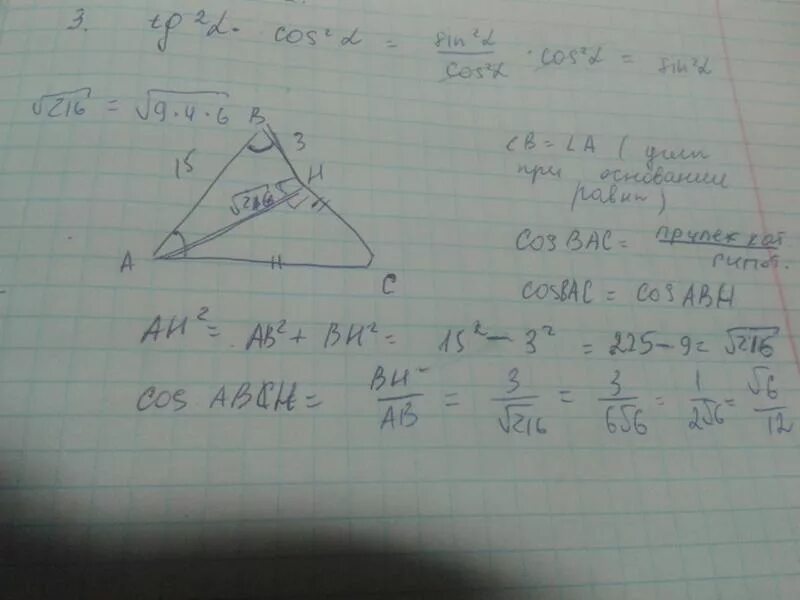 3. tg²α · cos²α = sin²α/cos²α · cos²α = sin²α
√216 = √9·4·6
B
3
15
H
√216
A
C
∠B = ∠A (углы
при основании
равны)
cos BAC = прилеж кат/гипот.
cos BAC = cos ABH
AH² = AB² + BH² = 15² – 3² = 225 – 9 = √216
cos ABH = BH/AB = 3/√216 = 3/6√6 = 1/2√6 = √6/12